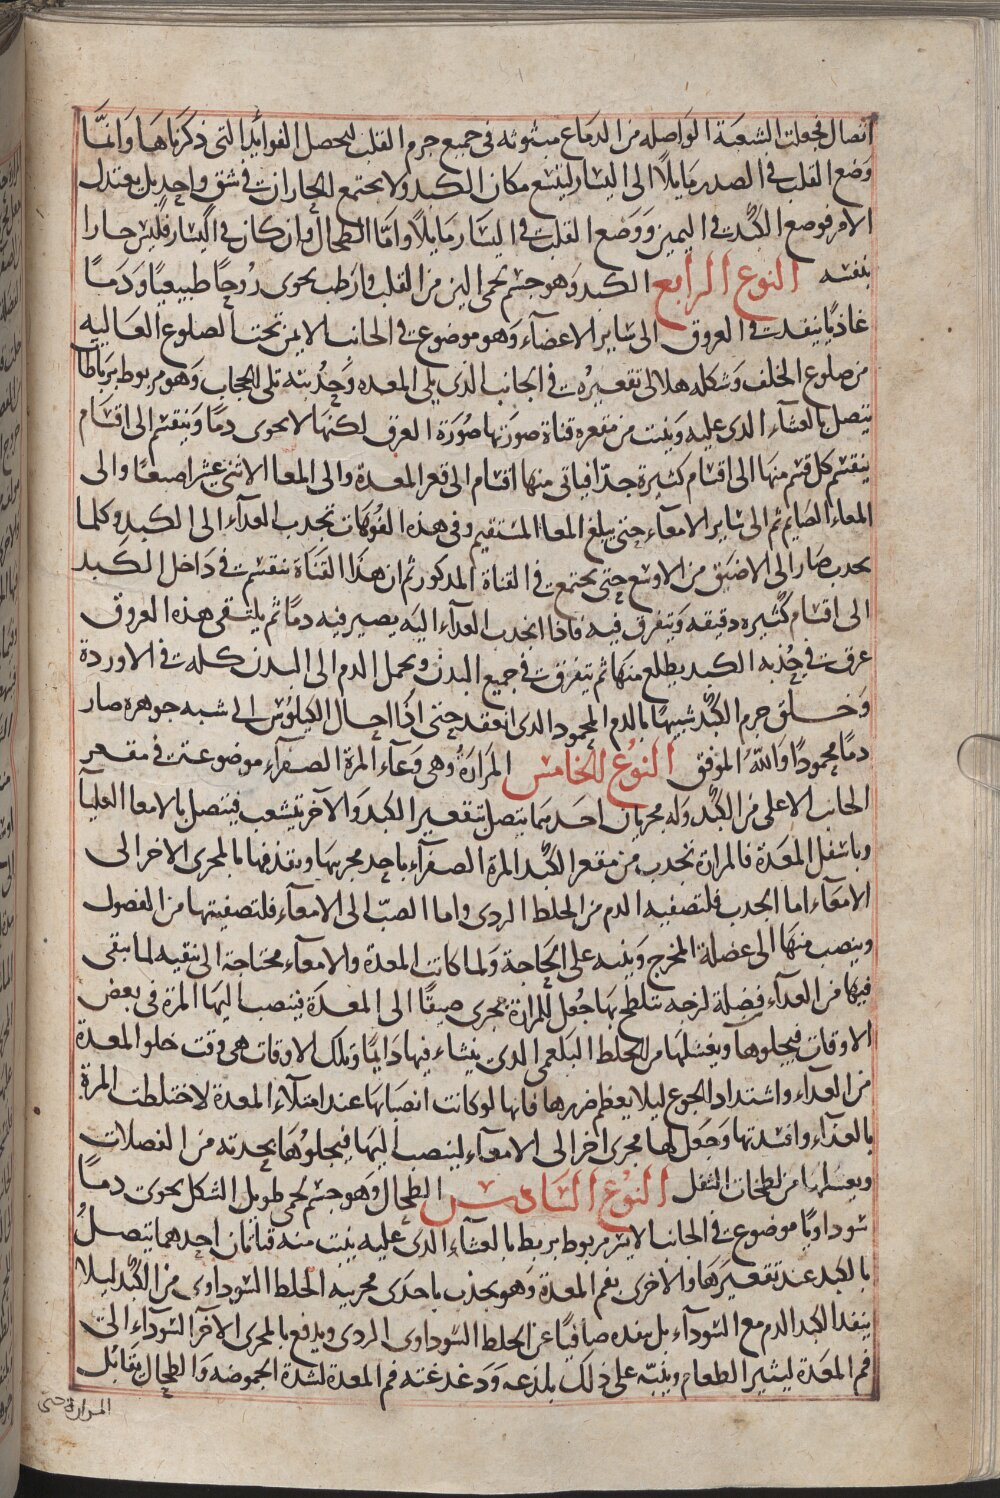 اتصال فجعلت الشعبة الواصله من الدماغ مبثوثه فى جميع جرم القلب ليحصل الفوائد التى ذكرناها وانما
وضع القلب فى الصدر مايلا الى اليسار ليتسع مكان الكبد ولا يجتمع الحاران فى شق واحد بل يعتدل
الامر فوضع الكبد فى اليمين ووضع القلب فى اليسار مايلا واما الطحال وان كان فى اليسار فليس حارا
بنفسه النوع الرابع الكبد وهو جسم لحمى الين من القلب وارطب يحوى روحا طبيعيا ودما
غاديا ينفد فى العروق الى ساير الاعضاء وهو موضوع فى الجانب الايمن تحت الصلوع العاليه
من ضلوع الخلف وشكله هلالى تقعيره فى الجانب الذى يلى المعده وحدبته تلى الحجاب وهو مربوط برباطا
يتصل بالغشاء الدى عليه وينبت من مقعره قناة صورتها صورة العرق لكنها لا يحوى دما وينقسم الى اقسام
ينقسم كل قسم منها الى اقسام كثيرة جدا فياتى منها اقسام الى قعر المعدة والى المعا الاثنى عشر اصبعا والى
المعاء الصايم ثم الى ساير الامعاء حتى يبلغ المعا المستقيم وفى هذه الفوهات تجدب الغدآء الى الكبد وكلما
يجدب صار الى الاضيق من الاوسع حتى يجتمع فى القناة المدكور ثم ان هذا القناة تنقسم فى داخل الكبد
الى اقسام كثيره دقيقه ويتفرق فيه فاذا انجدب الغدآء اليه يصير فيه دما ثم يلتقى هذه العروق
عرق فى حذبة الكبد يطلع منها ثم يتفرق فى جميع البدن ويحمل الدم الى البدن كله فى الاوردة
وخلق جرم الكبد شبيها بالدم المحمود الدى انعقد حتى اذا احال الكيلوس الى شبه جوهره صار
دما محمودا والله الموفق النوع الخامس المرارة وهى وعآء المرة الصفرآء موضوعة فى مقعر
الجانب الاعلى من الكبد وله مجريان احدهما يتصل بتقعير الكبد والآخر يتشعب فيتصل بالامعا العليا
وباسفل المعدة فالمرارة تجدب من مقعر الكبد المرة الصفرآء باحد مجريها ويقذفها بالمجرى الاخر الى
الامعآء اما الجدب فلتصفيه الدم من الخلط الردى واما الصب الى الامعآء فلتصفيتها من الفصول
وينصب منها الى عضلة المخرج وينبه على الحاجة ولما كانت المعدة والامعآء محتاجة الى تنقيه لما يبقى
فيها من الغدآء فضلة لزجه تتلطخ بها جعل للمرارة مجرى ضيقا الى المعدة ينصب اليها المرة فى بعض
الاوقات فيجلوها ويغسلها من الخلط البلغمى الدى ينشاء فيها دايما وتلك الاوقات هى وقت خلو المعدة
من الغداء واشتداد الجوع ليلا يعظم ضررها فانها لو كانت انصبابها عند امتلآء المعدة لاختلطت المرة
بالغذآء وافسدتها وجعل لها مجرى اخر الى الامعآء لينصب اليها فيجلوها بحدته من الفصلات
ويغسلها من لطخات الثفل النوع السادس الطحال وهو جسم لحمى طويل الشكل يحوى دما
سوداويا موضوع فى الجانب الايسر مربوط بربط بالغشآء الدى عليه ينبت منه قناتان احدهما يتصل
بالكبد عند تقعيرها والاخرى بفم المعدة وهو يجذب باحدى مجريه الخلط السوداوى من الكبد ليلا
ينفد الكبد الدم مع السودآء بل ينفده صافيا عن الخلط السوداوى الردى ويدفع بالمجرى الآخر السودآء الى
فم المعدة ليثير الطعام وينبه على ذلك بلذعه ودغدغته فم المعدة لشدة الحموضه والطحال يقابل
المرارة حتى